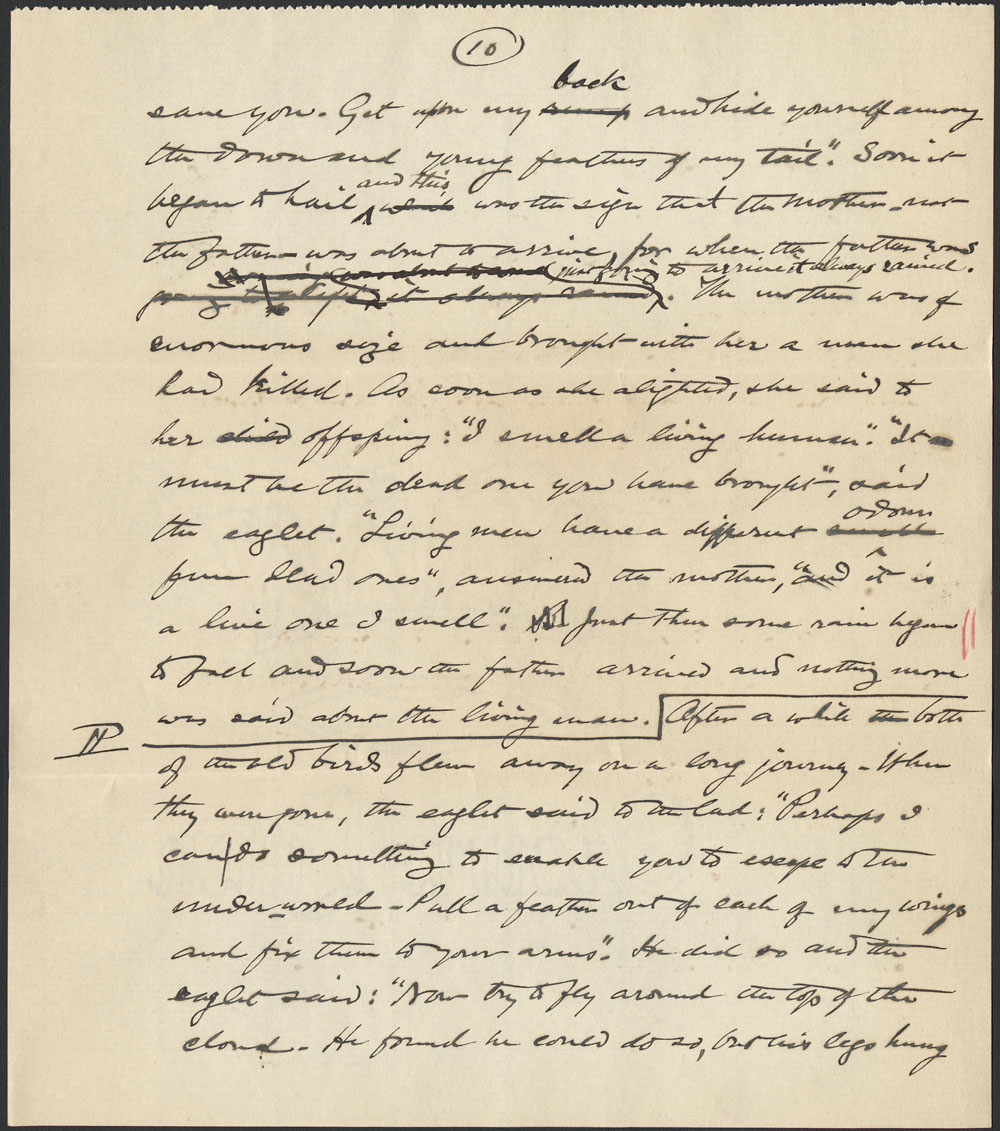 10
back
save you. Get upon my rump and hide yourself among
the down and young feathers of my tail". Soon it
and this
began to hail, which was the sign that the mother - not
the father - was about to arrive, for when the father was
just going to arrive it always rained.
it always rained. The mother was of
enormous size and brought with her a man she
had killed. As soon as she alighted, she said to
her child offspring: "I smell a living human". "It
must be the dead one you have brought", said
odour
the eaglet. "Living men have a different smell
from dead ones", answered the mother, "and it is
a live one I smell". Just then some rain began
to fall and soon the father arrived and nothing more
was said about the living man. After a while the both
of the old birds flew away on a long journey - When
they were gone, the eaglet said to the lad: "Perhaps I
can do something to enable you to escape to the
under-world - Pull a feather out of each of my wings
and fix them to your arms". He did so and the
eaglet said: "Now try to fly around the top of the
cloud. He found he could do so, but his legs hung